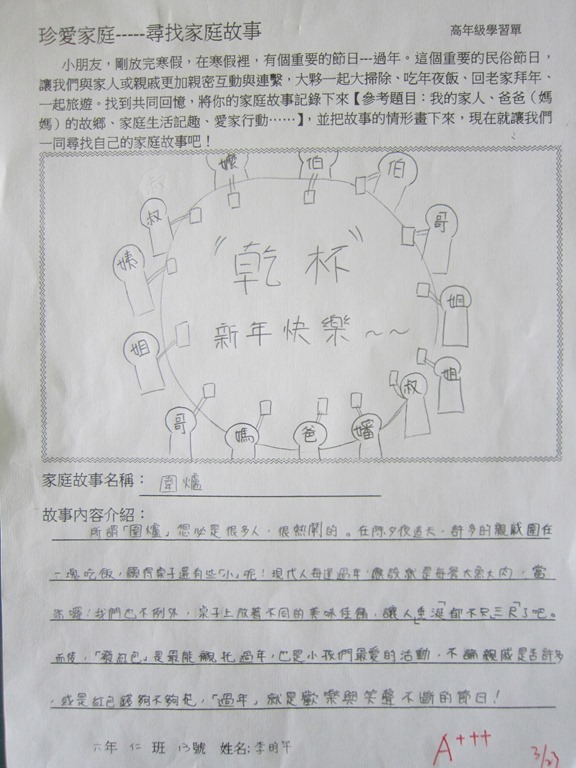 珍愛家庭-----尋找家庭故事
高年級學習單
小朋友，剛放完寒假，在寒假裡，有個重要的節日---過年。這個重要的民俗節日，
讓我們與家人或親戚更加親密互動與連繫，大夥一起大掃除、吃年夜飯、回老家拜年、
一起旅遊。找到共同回憶，將你的家庭故事記錄下來【參考題目：我的家人、爸爸（媽
媽）的故鄉、家庭生活記趣、愛家行動……】，並把故事的情形畫下來，現在就讓我們
一同尋找自己的家庭故事吧！
伯 伯
叔 哥
姨
"乾杯"
姐
新年快樂~~
姐 姐
叔
哥 媽 爸 嬸
家庭故事名稱：圍爐
故事內容介紹：
所謂「圍爐」想必是很多人，很熱鬧的。在除夕夜這天，許多的親戚圍在
一塊吃飯，顯得桌子還有些「小」呢！現代人每逢過年應該就是每餐大魚大肉，當
然囉！我們也不例外，桌子上放著不同的美味佳餚，讓人「垂涎」都不只「三尺」了吧。
而後，「發紅包」是最能襯托過年，也是小孩們最愛的活動，不論親戚是否許多
，或是紅包錢夠不夠花，「過年」就是歡樂與笑聲不斷的節日！
六年 仁 班 13號 姓名:李昀芊
A+++
3/27